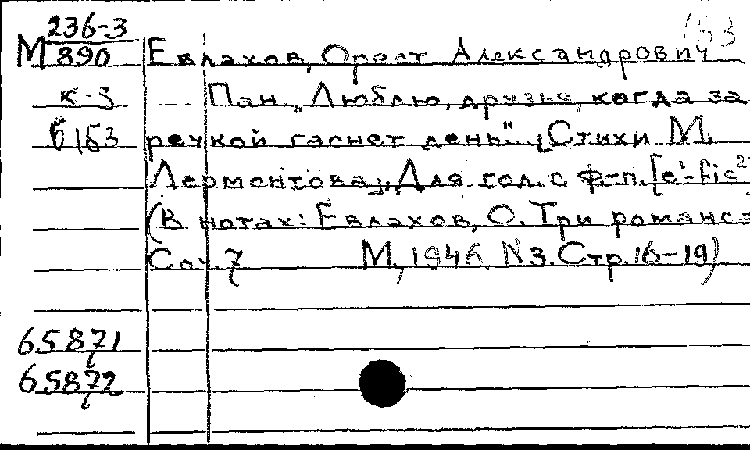 153
236-3
М 890 Евлахов, Орест Александрович
к-3 Пан. „Люблю, друзья, когда за
б153 речкой гаснет день". [Стихи М.
Лермонтова]. Для гол. с ф-п. [e¹-fis²
(В нотах: Евлахов, О. Три романса
Соч. 7 М., 1946. N3. Стр. 16-19)
65871
65872